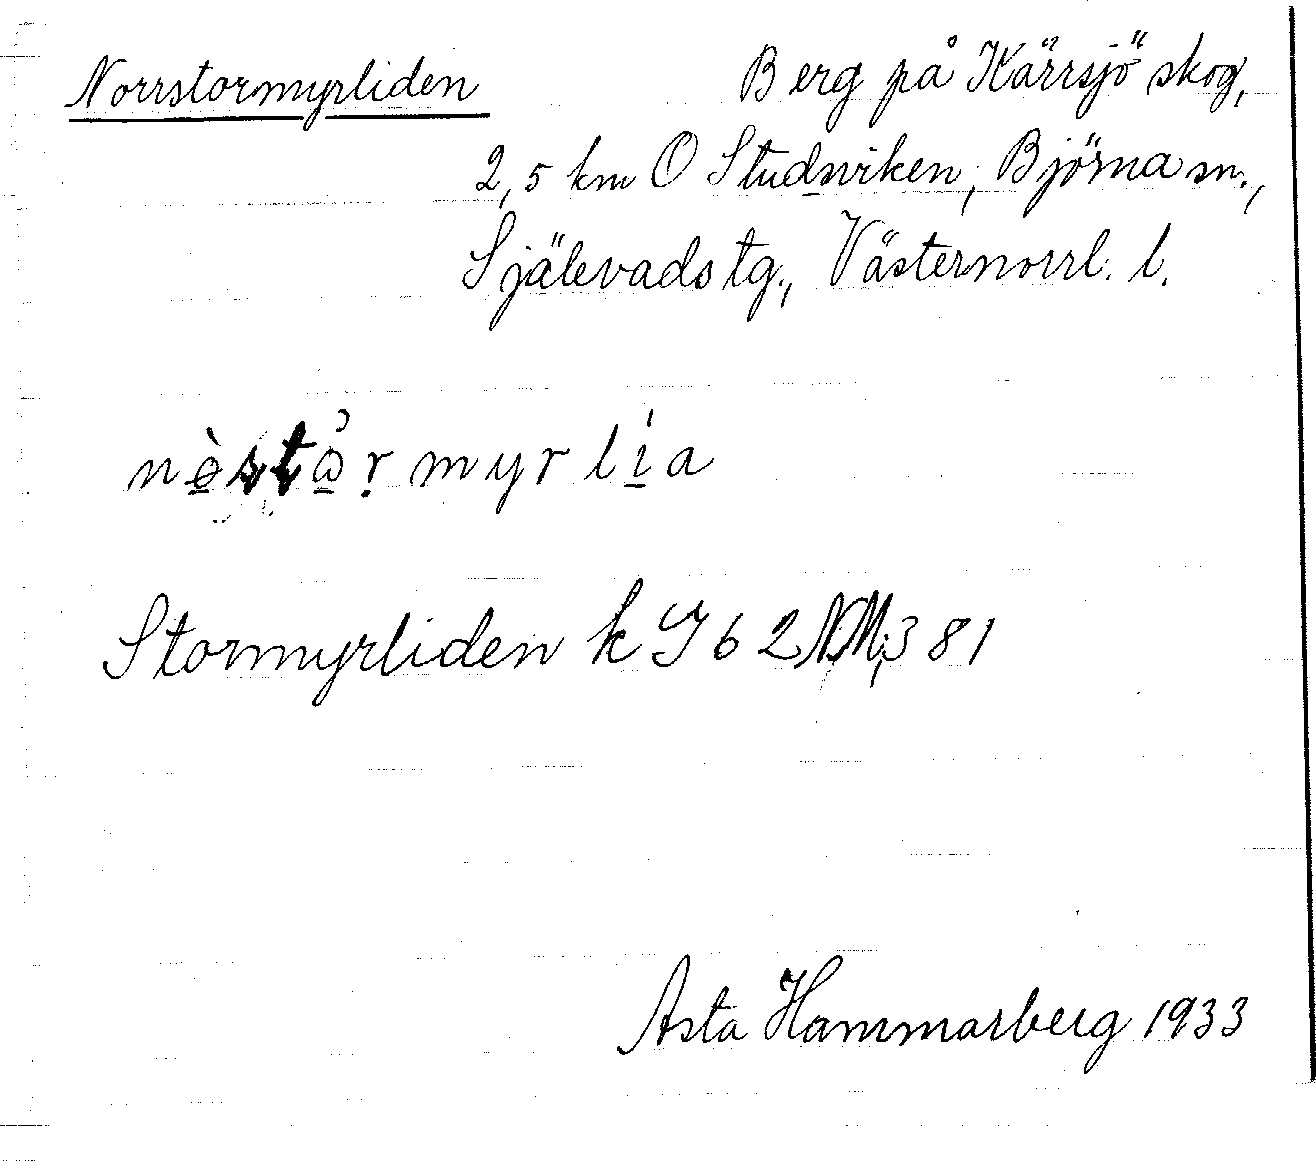 Norrstormyrliden Berg på Kärrsjö skog,
2,5 km O Studsviken, Björna sn.,
Själevads tg., Västernorrl. l.
myrlia
Stormyrliden k J 62 NM, 381
Asta Hammarberg 1933